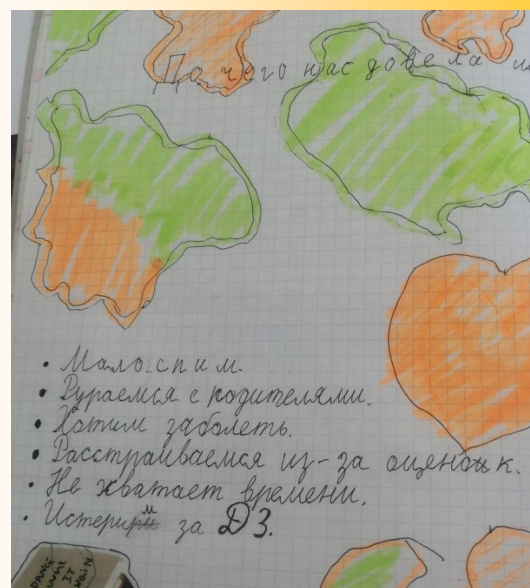 До чего нас довела
• Мало спим.
• Ругаемся с родителями.
• Хотим заболеть.
• Расстраиваемся из-за оценок.
• Не хватает времени.
• Истерим за ДЗ.
DANCE
IT